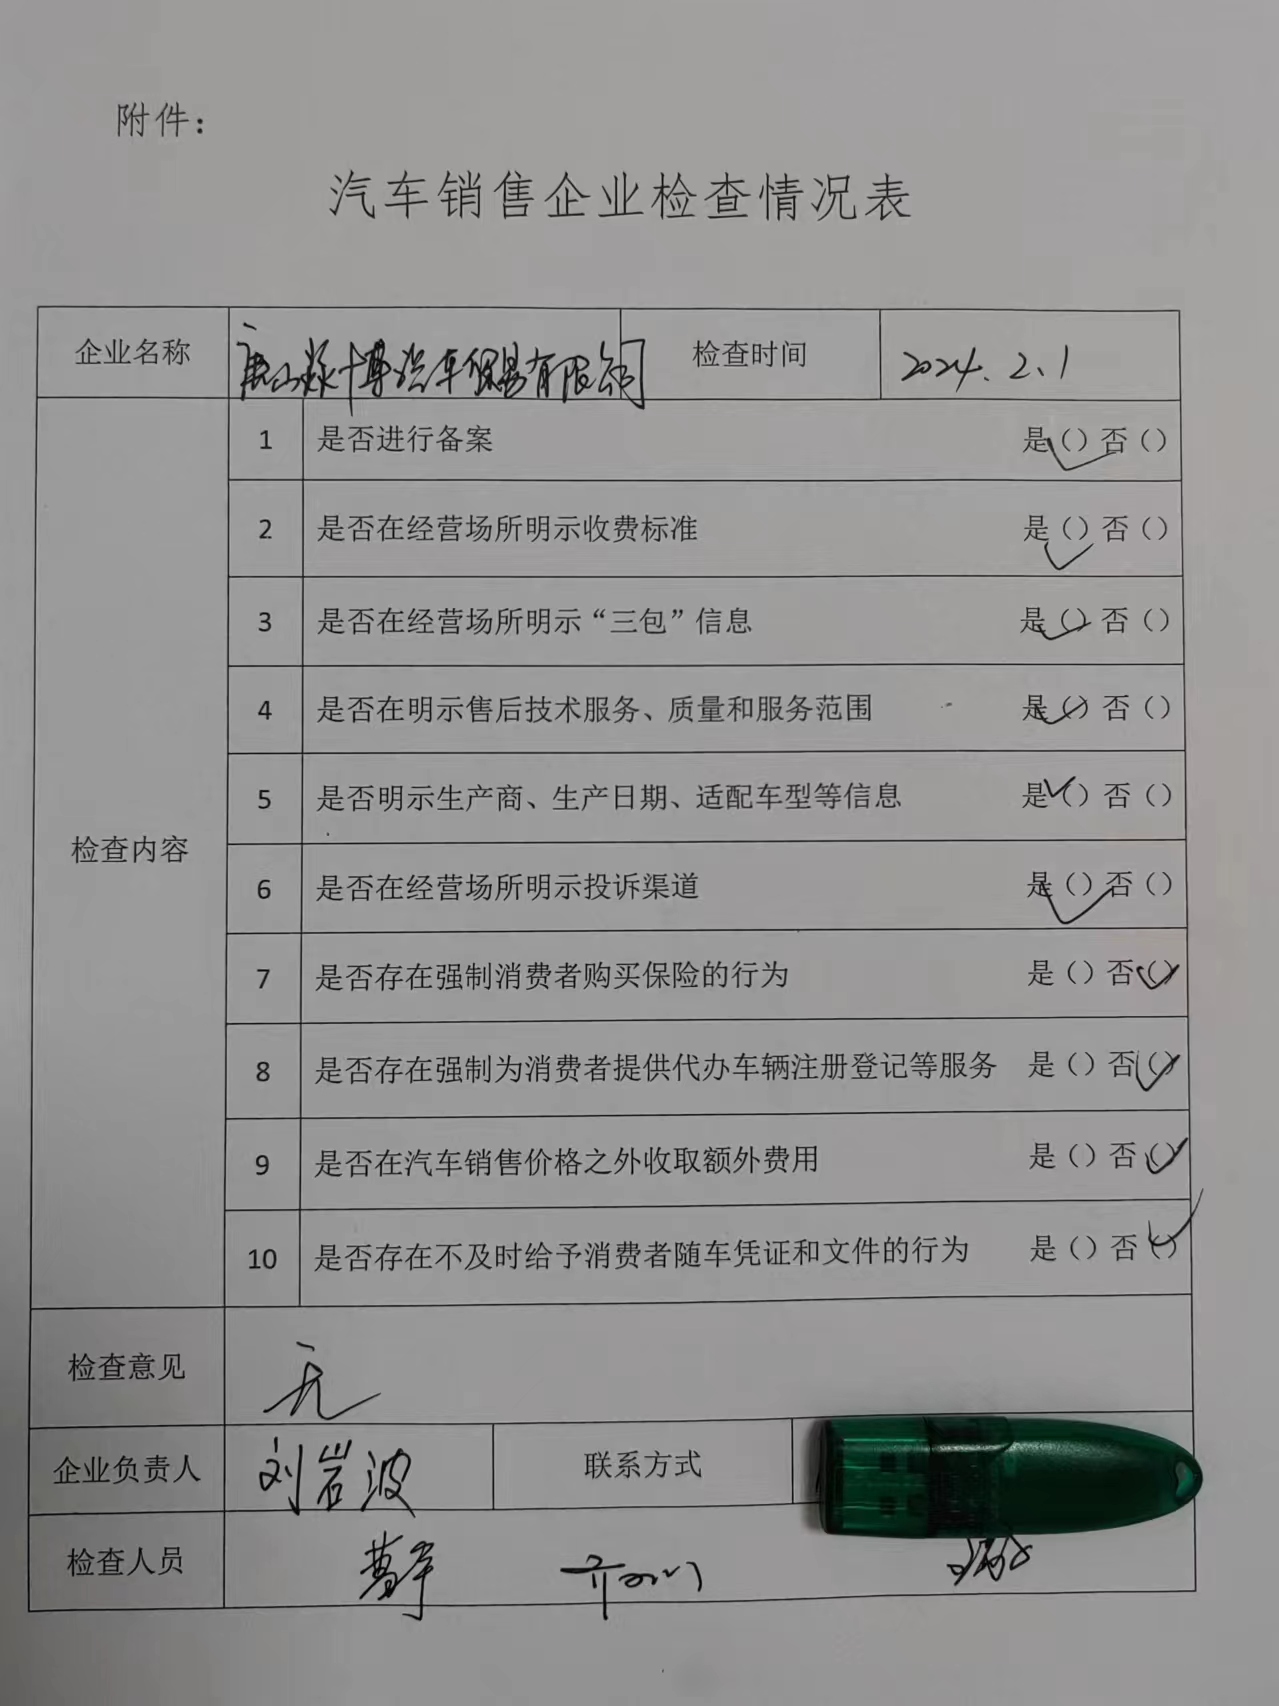 附件：
汽车销售企业检查情况表
企业名称 唐山 博汽车贸易有限公司 检查时间 2024.2.1
检查内容
1 是否进行备案 是（✓）否（）
2 是否在经营场所明示收费标准 是（✓）否（）
3 是否在经营场所明示“三包”信息 是（✓）否（）
4 是否在明示售后技术服务、质量和服务范围 是（✓）否（）
5 是否明示生产商、生产日期、适配车型等信息 是（✓）否（）
6 是否在经营场所明示投诉渠道 是（✓）否（）
7 是否存在强制消费者购买保险的行为 是（）否（✓）
8 是否存在强制为消费者提供代办车辆注册登记等服务 是（）否（✓）
9 是否在汽车销售价格之外收取额外费用 是（）否（✓）
10 是否存在不及时给予消费者随车凭证和文件的行为 是（）否（✓）
检查意见 无
企业负责人 刘岩波 联系方式
检查人员